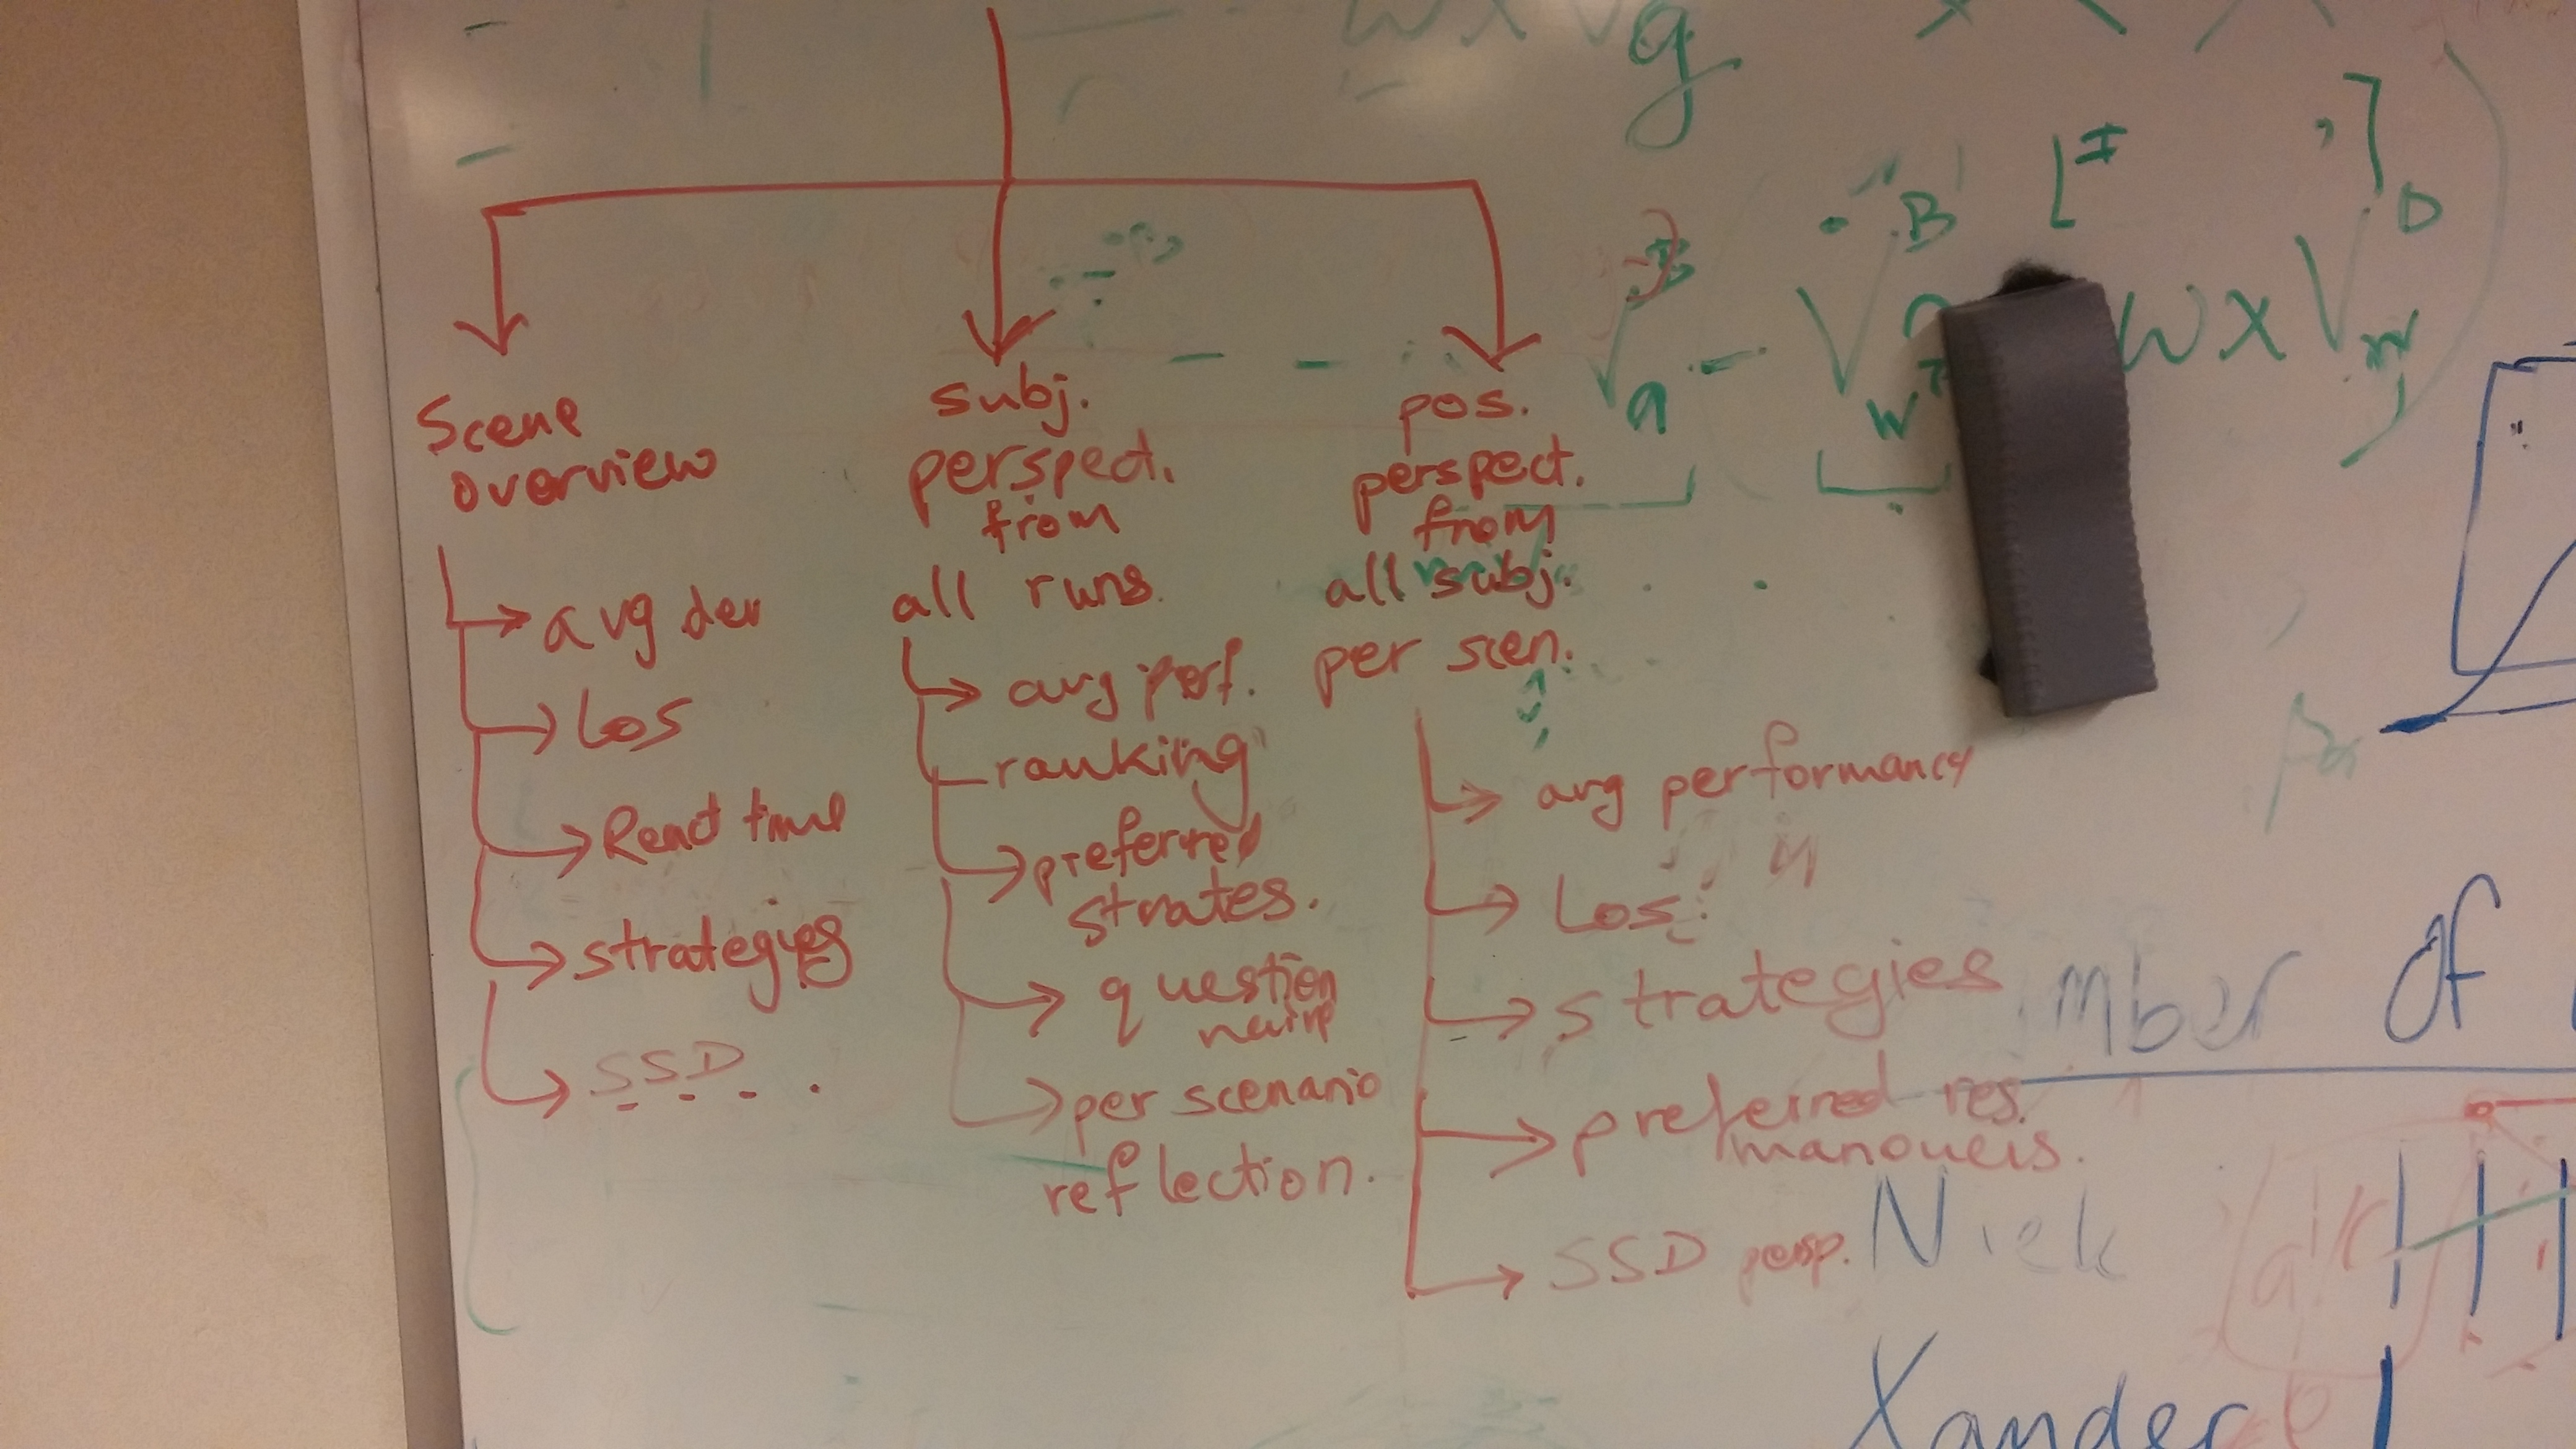 g
B
[I , ]
D
a - w
w x V
Scene
overview
avg dev
Los
React time
strategies
SSD
subj.
perspect.
from
all runs.
avg perf.
ranking
preferred
strates.
question
naire
per scenario
reflection.
pos.
perspect.
from
all subj.
per scen.
avg performancy
Los
strategies
preferred res.
manouvers.
SSD persp.
mber of
Niek
air
Xander